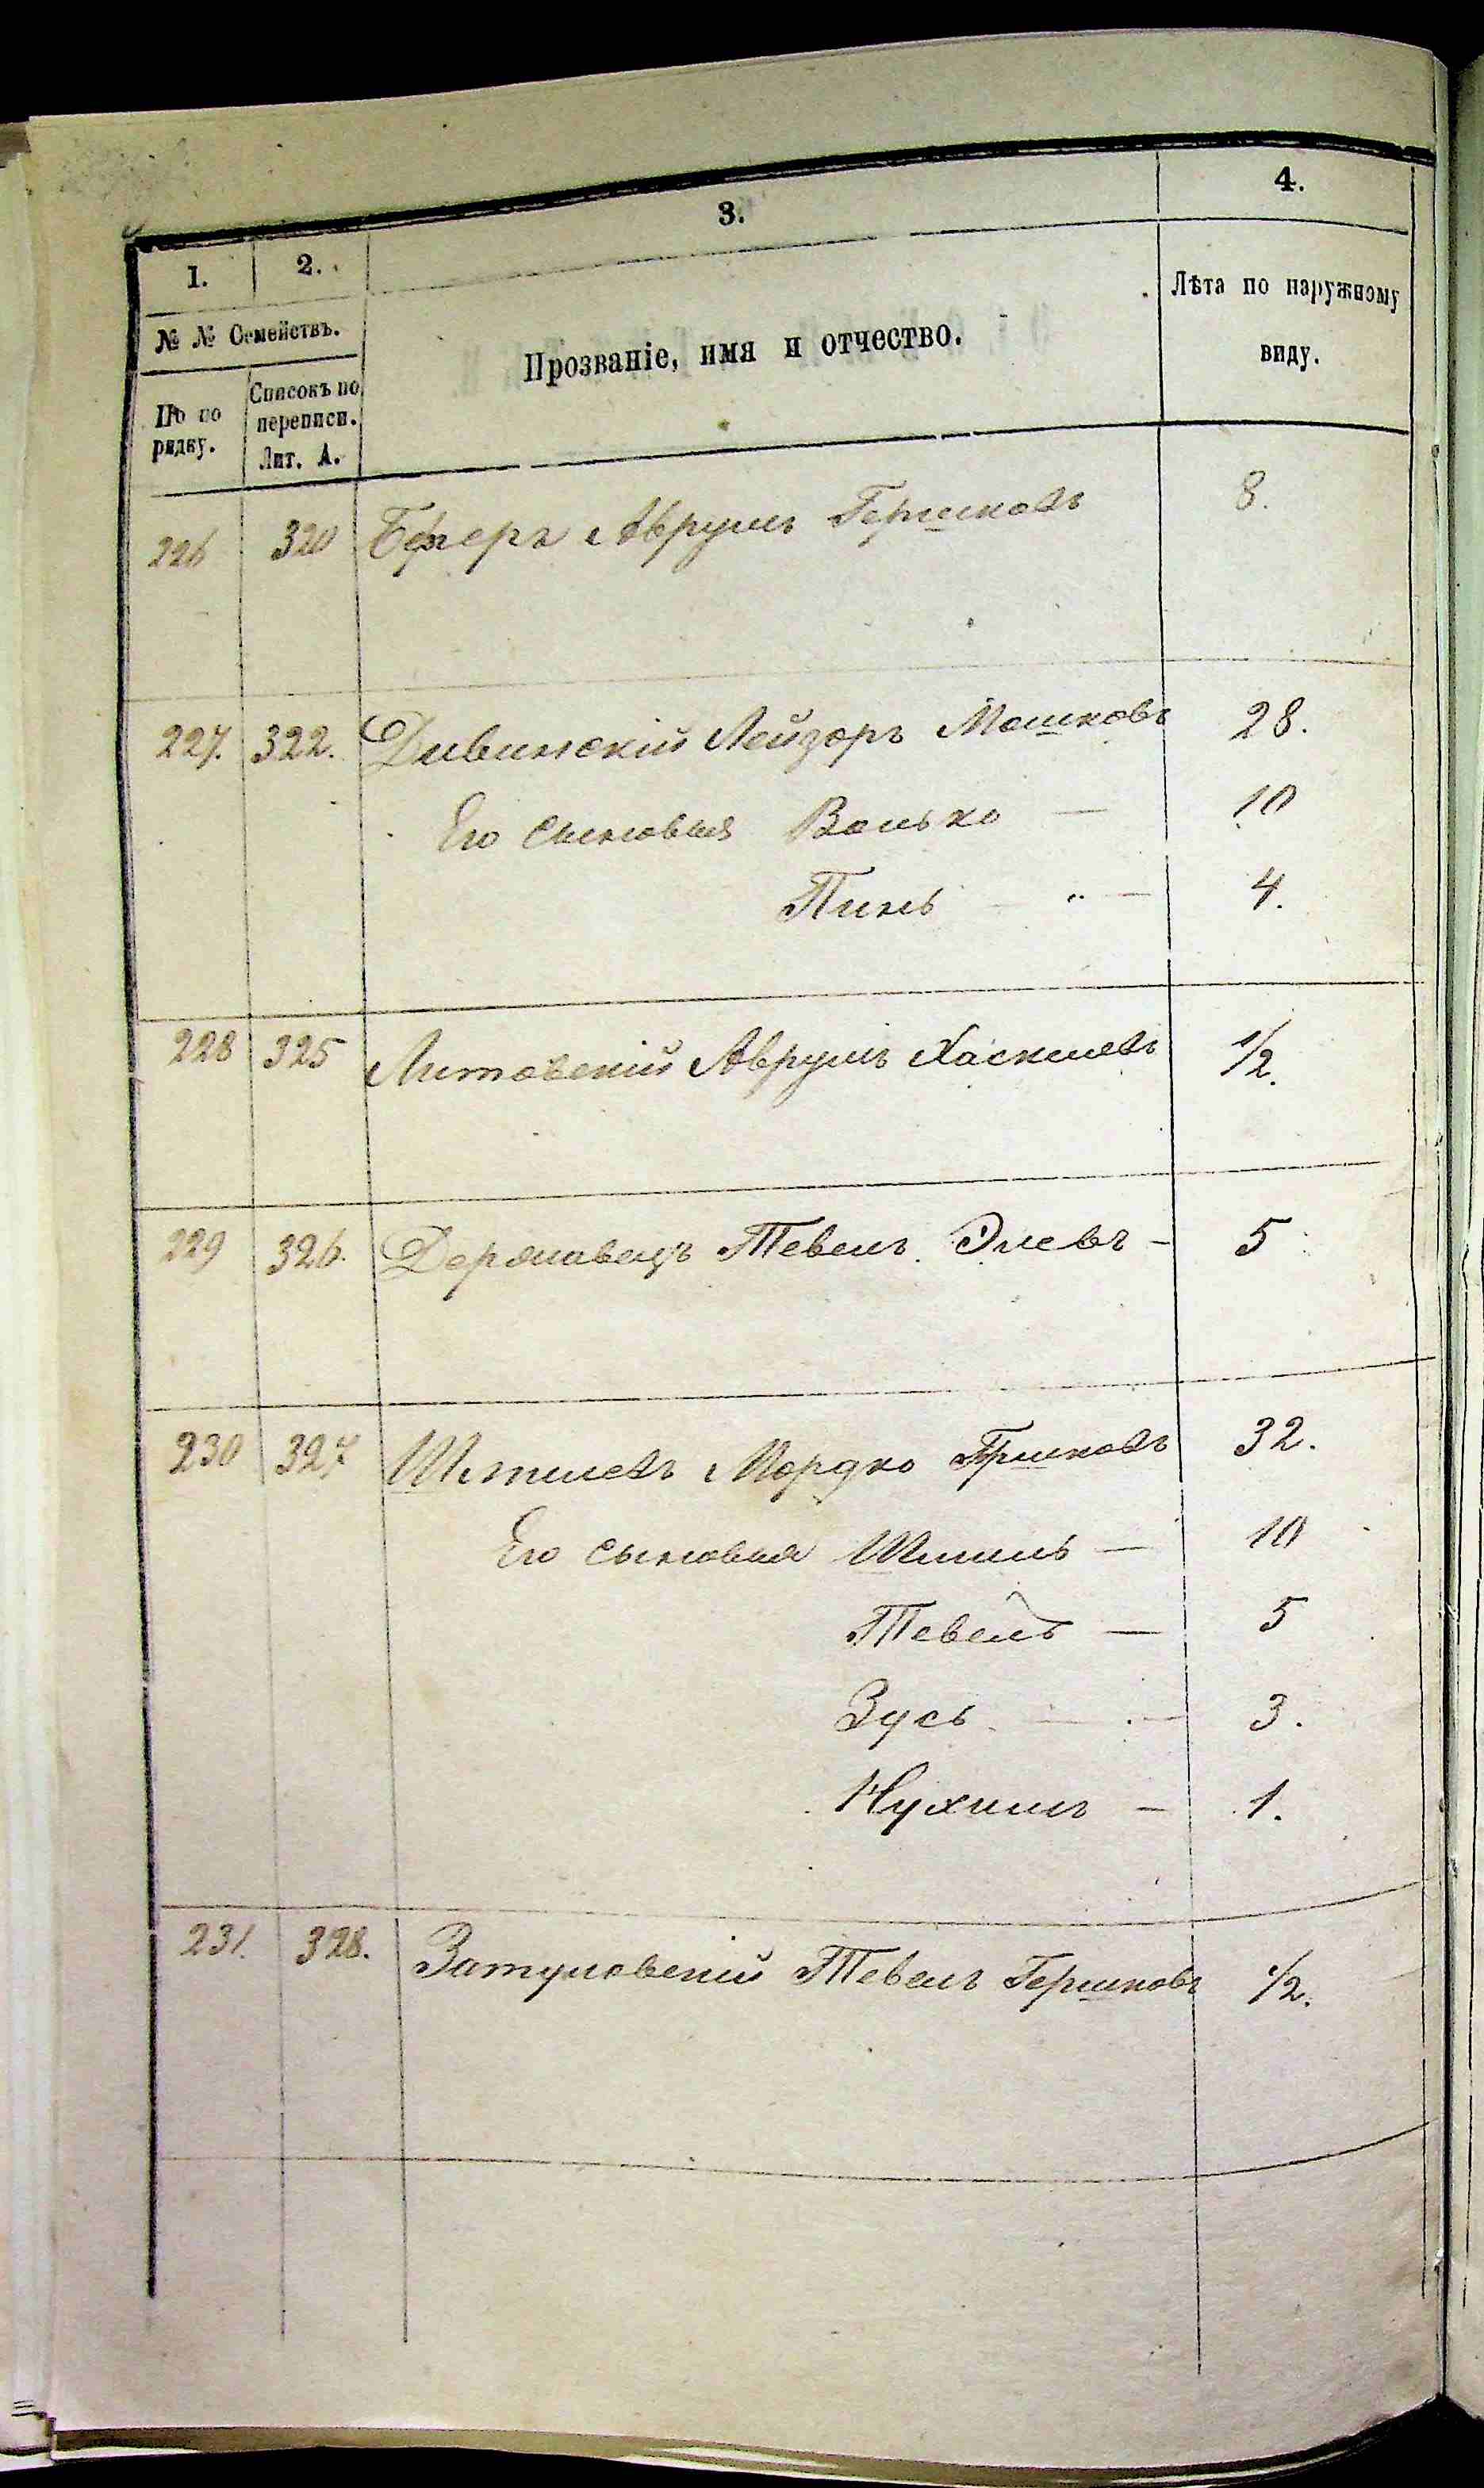 1. 2. 3. 4.
№ № Семействъ.
По по рядку.
Списокъ по переписи. Лит. А.
Прозваніе, имя и отчество.
Лѣта по наружному виду.
226 320 Аврумъ Гершковъ 8.
227. 322. Дивинскій Лейзоръ Мошковъ 28.
Его сыновья Волько — 10
Пинь — " — 4.
228 325 Литовскій Аврумъ Хаскилевъ 1/2.
229 326. Державецъ Тевель Элевъ — 5
230 327 Мордко Гршковъ 32.
Его сыновья Шмиль — 10
Тевель — 5
Зусь — 3.
Нухимъ — 1.
231. 328. Затуловскій Тевель Гершковъ 1/2.